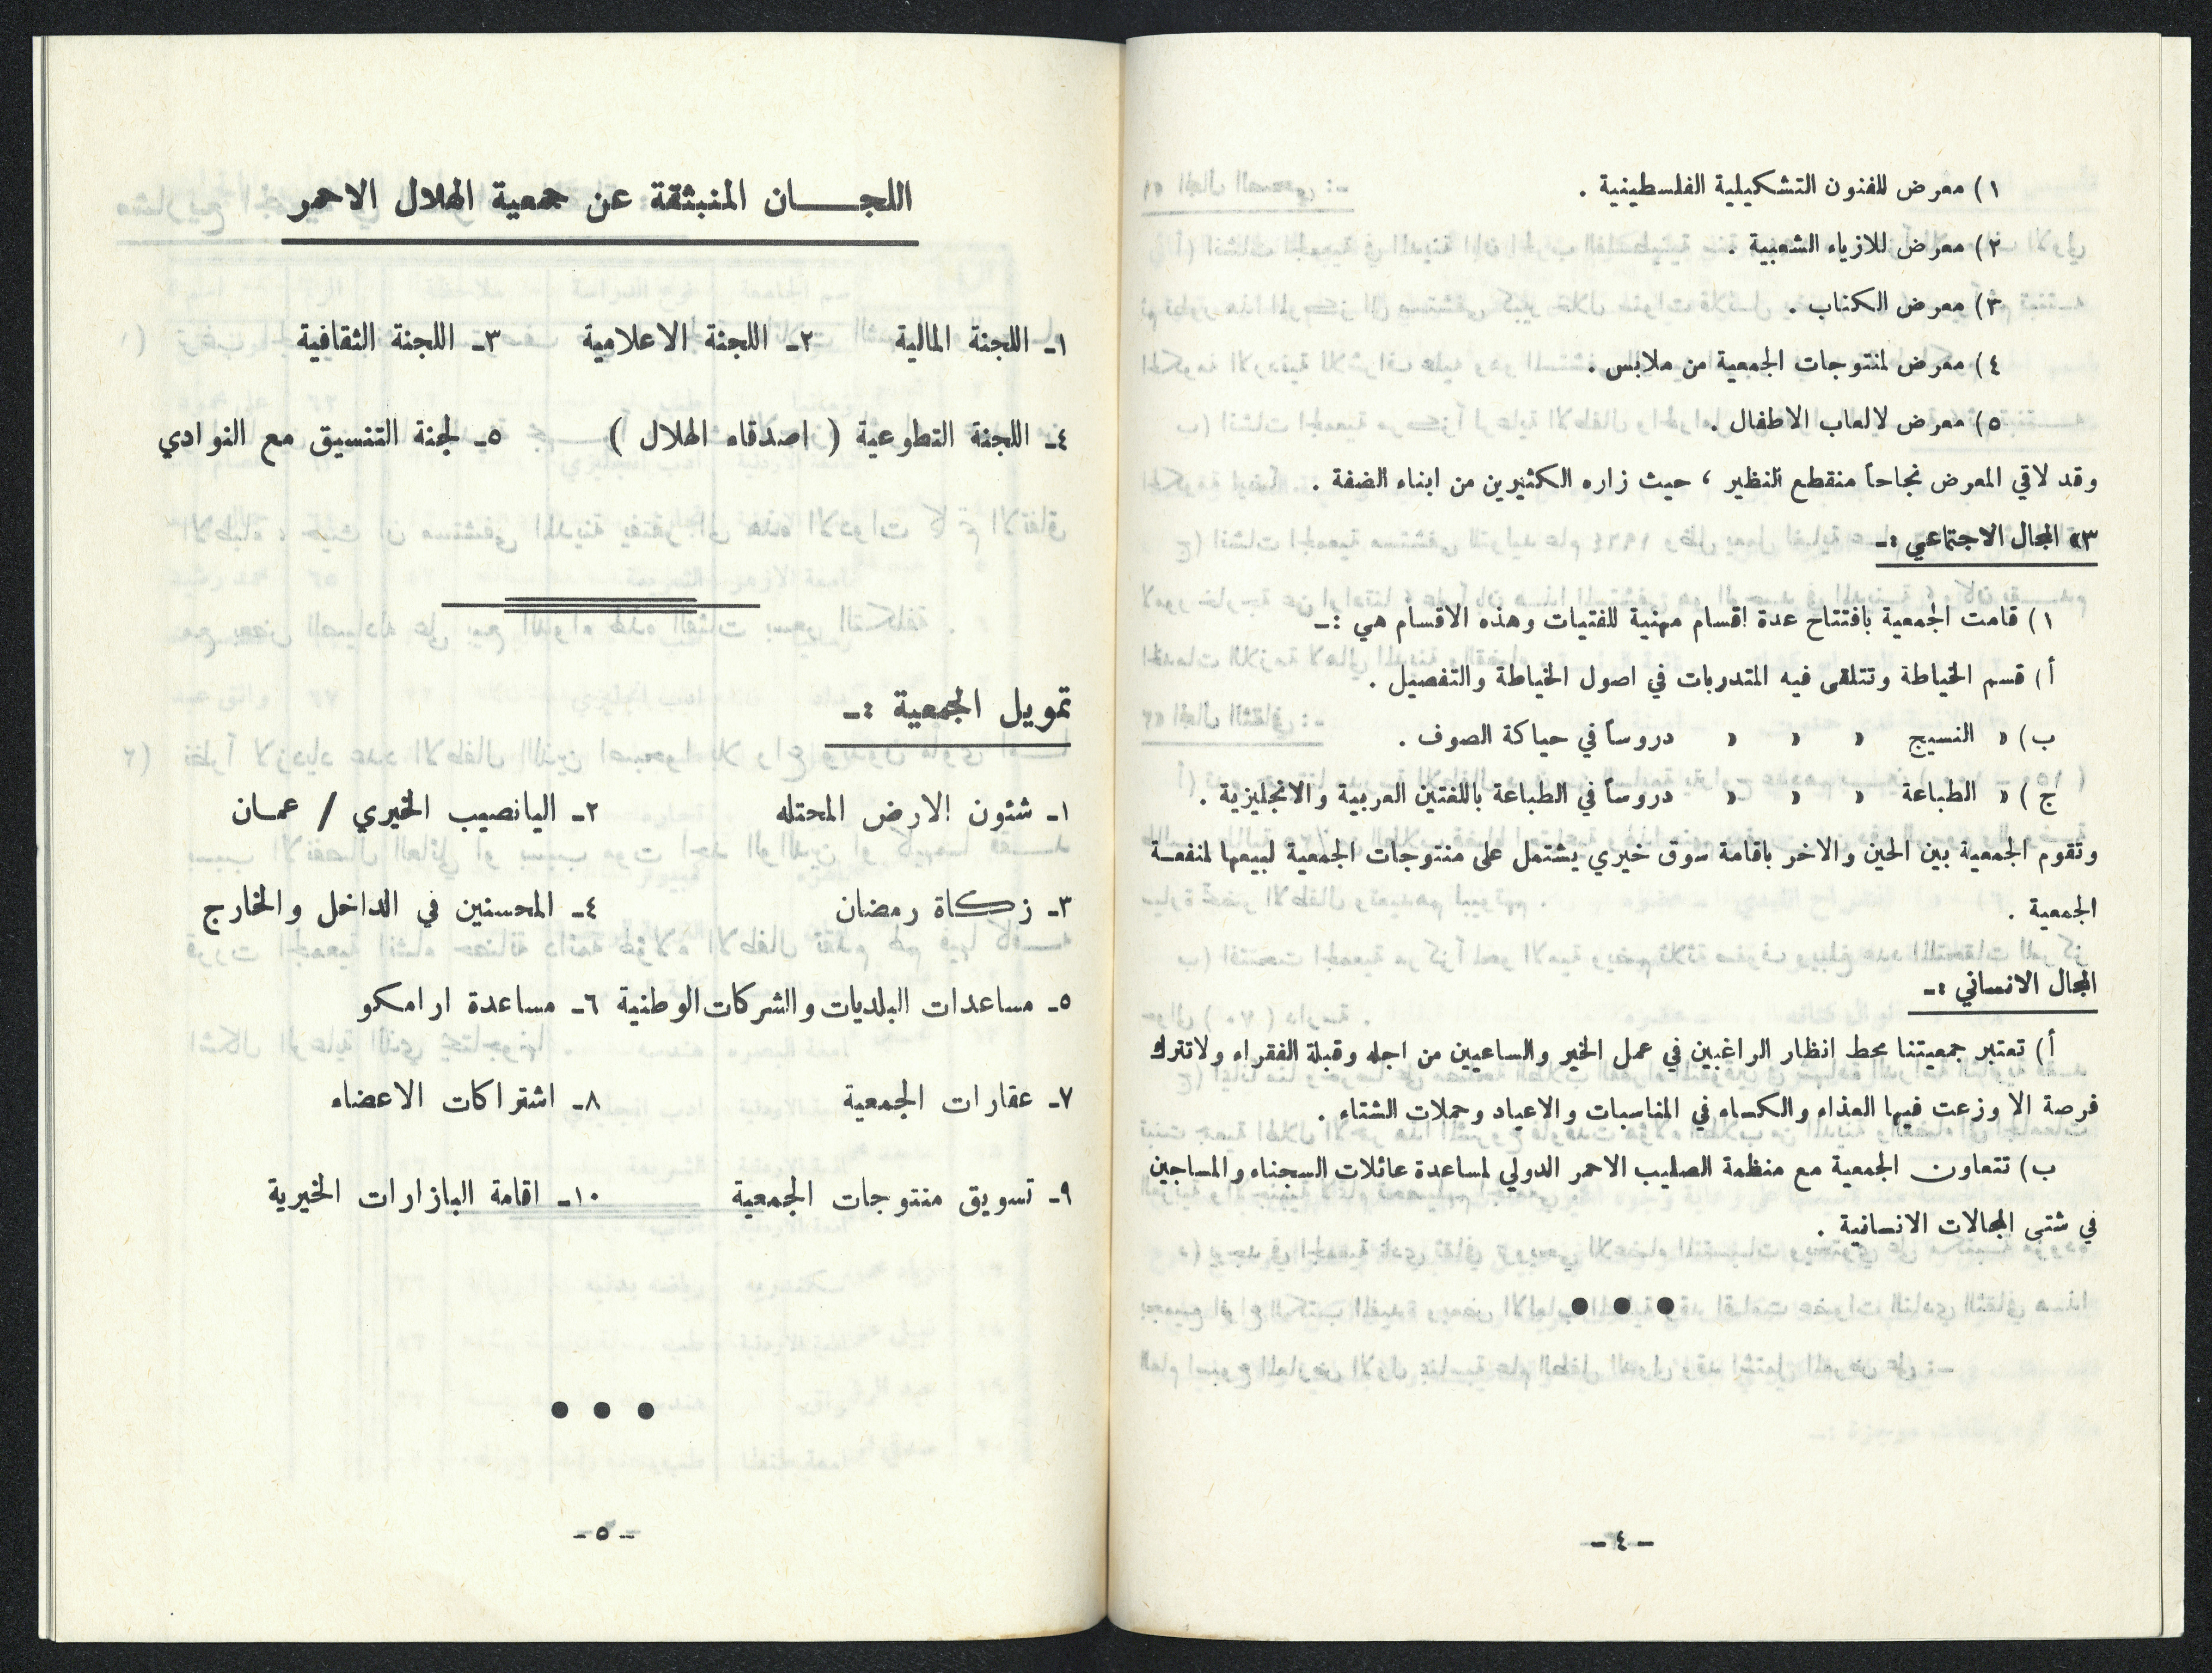 ١) معرض للفنون التشكيلية الفلسطينية .
٢) معرض للازياء الشعبية .
٣) معرض الكتاب .
٤) معرض لمنتوجات الجمعية من ملابس .
٥) معرض لالعاب الاطفال .
وقد لاقي المعرض نجاحاً منقطع النظير ، حيث زاره الكثيرين من ابناء الضفة .
٣» المجال الاجتماعي :ـ
١) قامت الجمعية بافتتاح عدة اقسام مهنية للفتيات وهذه الاقسام هي :ـ
أ) قسم الخياطة وتتلقى فيه المتدربات في اصول الخياطة والتفصيل .
ب) » النسيج » » » دروساً في حياكة الصوف .
ج) » الطباعة » » » دروساً في الطباعة باللغتين العربية والانجليزية .
وتقوم الجمعية بين الحين والاخر باقامة سوق خيري يشتمل على منتوجات الجمعية لبيعها لمنفعـة
الجمعية .
المجال الانساني :ـ
أ) تعتبر جمعيتنا محط انظار الراغبين في عمل الخير والساعيين من اجله وقبلة الفقراء ولاتترك
فرصة الا وزعت فيها الغذاء والكساء في المناسبات والاعياد وحملات الشتاء .
ب) تتعاون الجمعية مع منظمة الصليب الاحمر الدولي لمساعدة عائلات السجناء والمساجين
في شتى المجالات الانسانية .
● ● ●
ـ ٤ ـ
اللجـــــان المنبثقة عن جمعية الهلال الاحمر
١ـ اللجنة المالية ٢ـ اللجنة الاعلامية ٣ـ اللجنة الثقافية
٤ـ اللجنة التطوعية ( اصدقاء الهلال ) ٥ـ لجنة التنسيق مع النوادي
تمويل الجمعية :ـ
١ـ شئون الارض المحتله ٢ـ اليانصيب الخيري / عمـان
٣ـ زكـاة رمضان ٤ـ المحسنين في الداخل والخارج
٥ـ مساعدات البلديات والشركات الوطنية ٦ـ مساعدة ارامكو
٧ـ عقارات الجمعية ٨ـ اشتراكات الاعضاء
٩ـ تسويق منتوجات الجمعية ١٠ـ اقامة البازارات الخيرية
● ● ●
ـ ٥ ـ